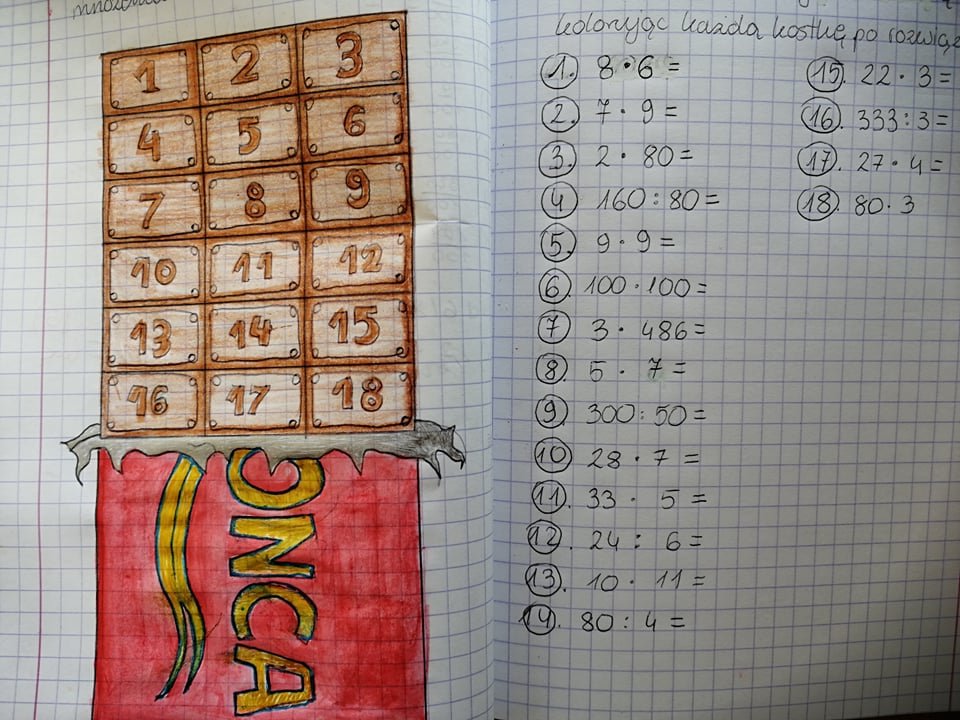 1 2 3
4 5 6
7 8 9
10 11 12
13 14 15
16 17 18
ONCA
kolorując każdą kostkę po
1. 8 · 6 =
2. 7 · 9 =
3. 2 · 80 =
4 160 : 80 =
5. 9 · 9 =
6. 100 · 100 =
7 3 · 486 =
8. 5 · 7 =
9. 300 : 50 =
10 28 · 7 =
11. 33 · 5 =
12. 24 : 6 =
13. 10 · 11 =
14. 80 : 4 =
15. 22 · 3 =
16. 333 : 3 =
17. 27 · 4 =
18. 80 · 3